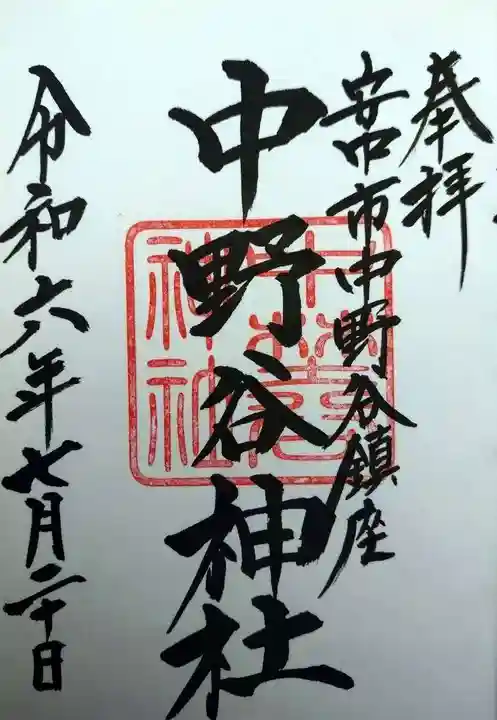 奉拝
安中市中野谷鎮座
中野谷神社
令和六年七月二十日